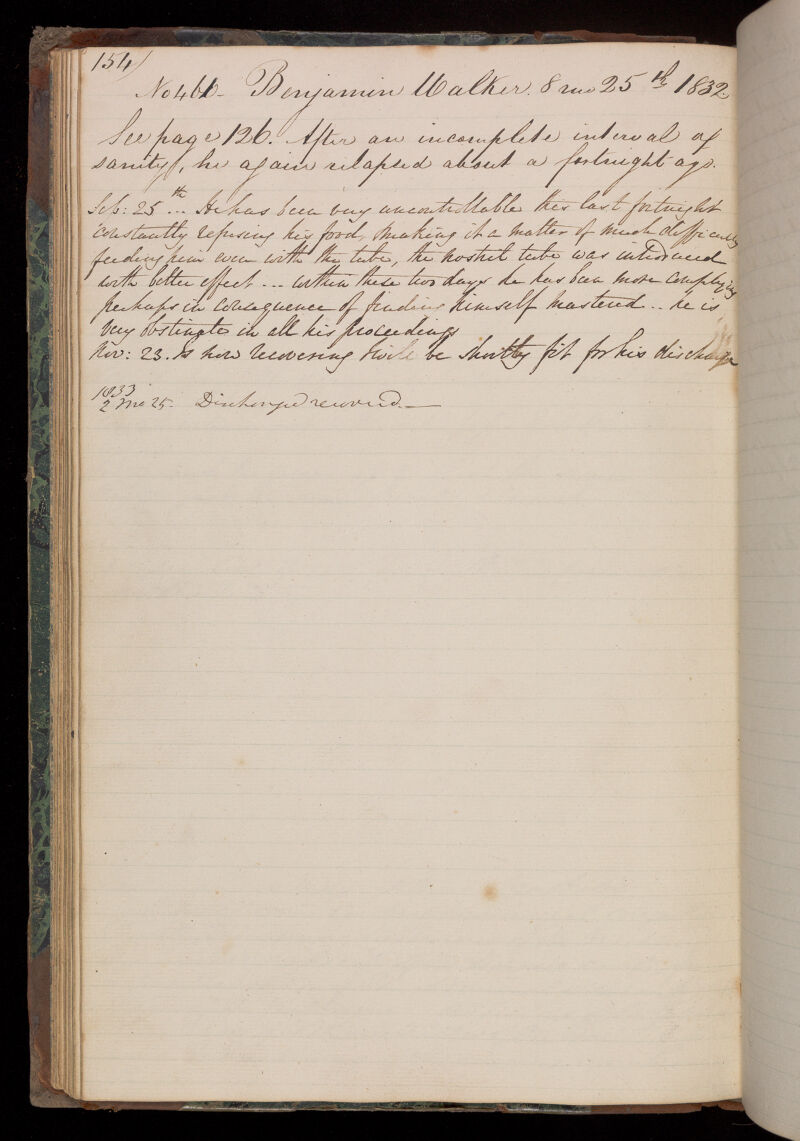 154
No 461 - Benjamin Walker. 8 mo 25th 1832.
See page 126. After an incomplete interval of
sanity, he again relapsed about a fortnight ago.
Sep: 25th... He has been very uncontrollable this last fortnight
constantly refusing his food, making it a matter of much difficulty
feeding him even with the tube, the nostril tube was introduced
with better effect --- within these two days he has been more complying
perhaps in consequence of finding himself mastered .. he is
very obstinate in all his proceedings
Nov: 23. Is now recovering & will be shortly fit for his discharge
1833
2 mo 25. Discharged recovered.—